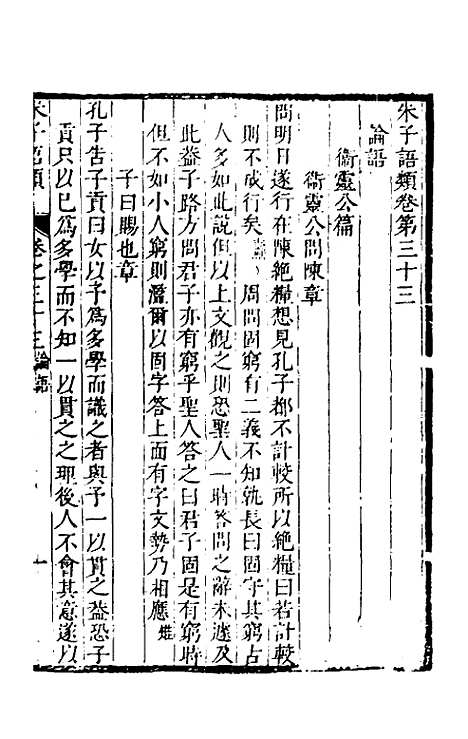 朱子語類卷第三十三
論語
衞靈公篇
衞靈公問陳章
問明日遂行在陳絕糧想見孔子都不計較所以絕糧曰若計較
則不成行矣 周問固窮有二義不知孰長曰固守其窮古
人多如此說但以上文觀之則恐聖人一時答問之辭未遽及
此蓋子路方問君子亦有窮乎聖人答之曰君子固是有窮時
但不如小人窮則濫爾以固字答上面有字文勢乃相應 㽦
子曰賜也章
孔子告子貢曰女以予爲多學而識之者與予一以貫之蓋恐子
貢只以己爲多學而不知一以貫之之理後人不會其意遂以
朱子語類 卷之三十三 論語 一